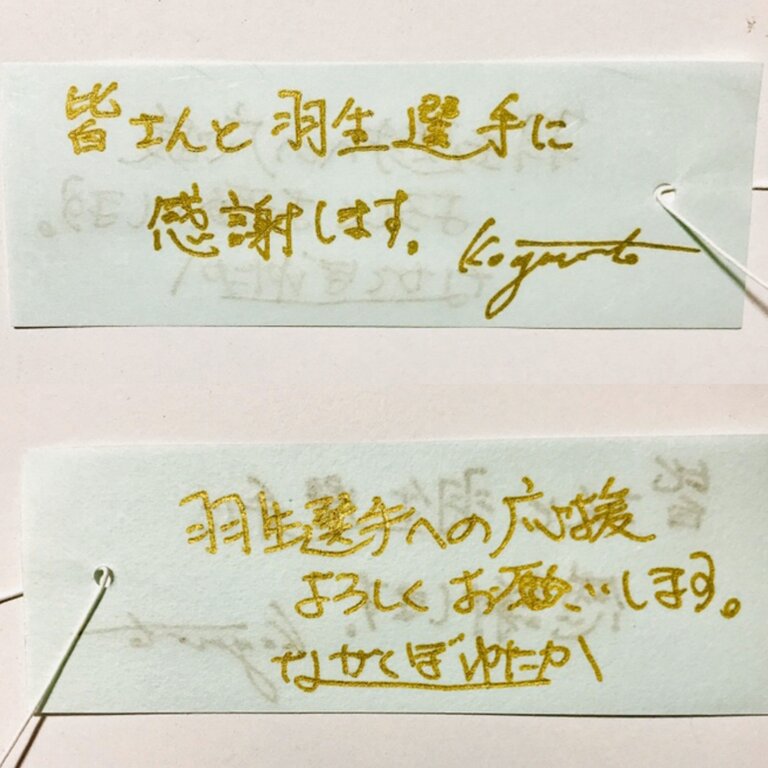 皆さんと羽生選手に
感謝します。
羽生選手への応援
よろしくお願いします。
なかくぼゆたか